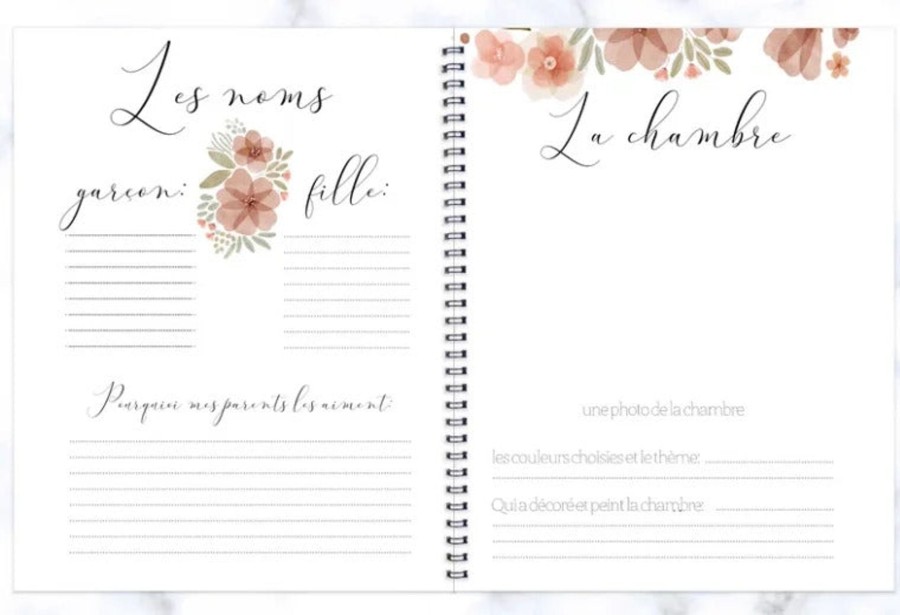 Les noms
garçon:
fille:
Pourquoi mes parents les aiment:
La chambre
une photo de la chambre
les couleurs choisies et le thème:
Qui a décoré et peint la chambre: